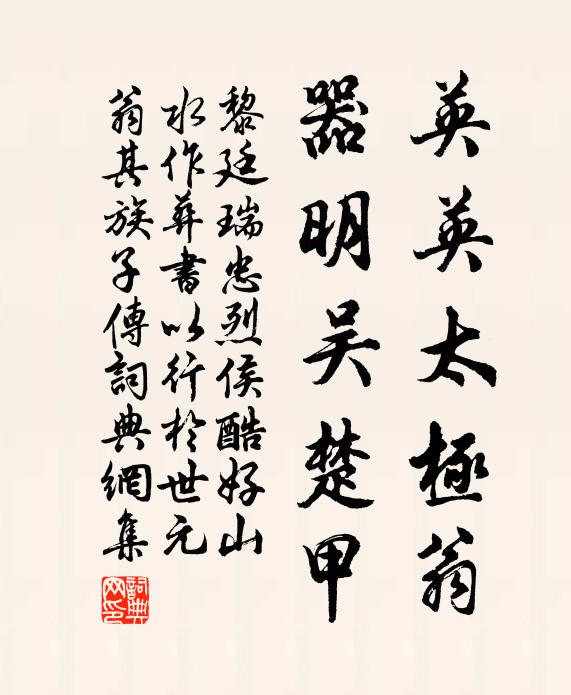 英英太極翁
器明吴楚甲
黎廷瑞忠烈侯酷好山
水作葬書以行於世元
翁其族子傳詞典網集
詞典网印